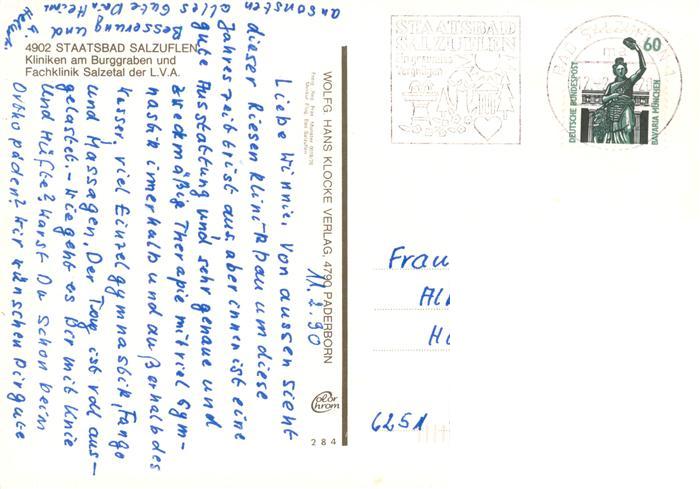 4902 STAATSBAD SALZUFLEN
Kliniken am Burggraben und
Fachklinik Salzetal der L.V.A.
11.2.90
Liebe Winnie. Von aussen sieht
dieser Riesen klinikbau um diese
Jahreszeit trist aus, aber innen ist eine
gute Ausstattung und sehr genaue und
zweckmäßige Therapie mit viel Gym-
nastik innerhalb und außerhalb des
Wasser, viel Einzelgymnastik, Fango
und Massagen. Der Tag ist voll aus-
gelastet. - Wie geht es Ber mit Knie
und Hüfte? Warst Du schon beim
Orthopäden? Wir wünschen Dir gute
Besserung und
ansonsten alles Gute Dein Heimi
WOLFG. HANS KLOCKE VERLAG, 4790 PADERBORN
Color
chrom
284
STAATSBAD
SALZUFLEN
BAD SALZUFLEN 1
60
DEUTSCHE BUNDESPOST
BAVARIA MÜNCHEN
Frau
6251